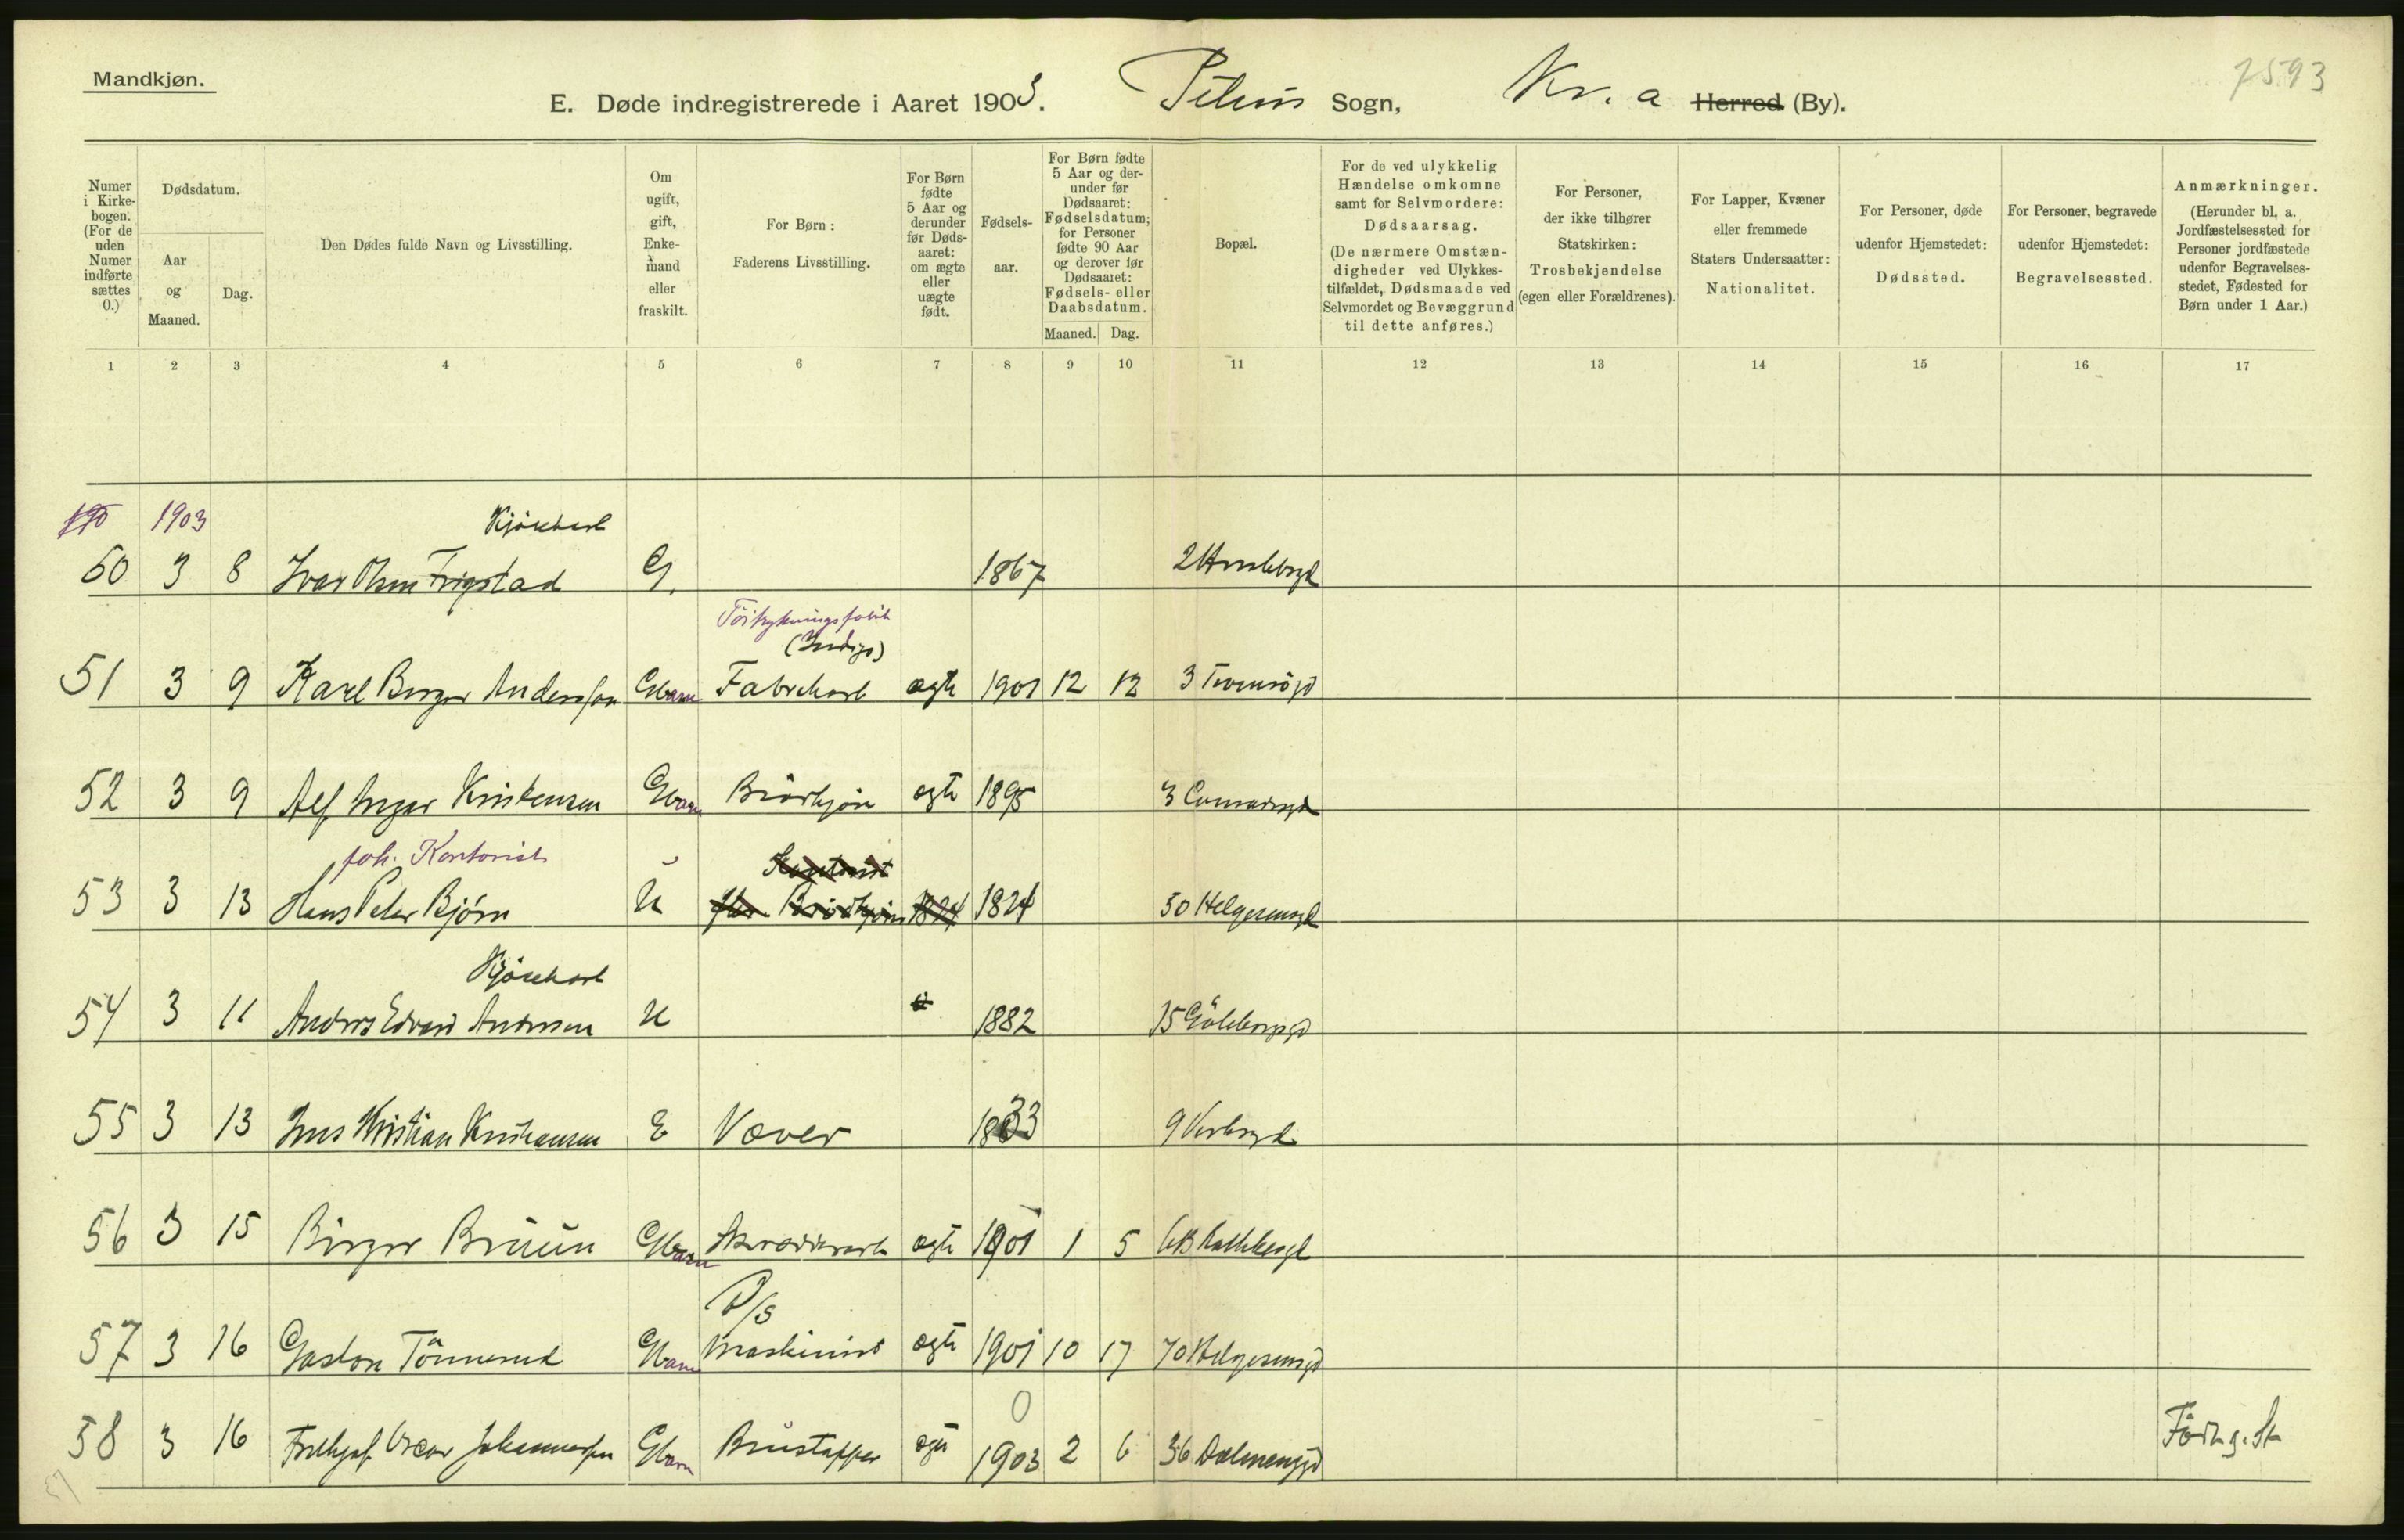 Mandkjøn.
E. Døde indregistrerede i Aaret 1903. Petrus Sogn, Kr.a Herred (By).
7593
Numer i Kirkebogen. (For de uden Numer indførte sættes 0.)
Dødsdatum.
Aar og Maaned.
Dag.
Den Dødes fulde Navn og Livsstilling.
Om ugift, gift, Enkemand eller fraskilt.
For Børn: Faderens Livsstilling.
For Børn fødte 5 Aar og derunder før Dødsaaret: om ægte eller uægte født.
Fødselsaar.
For Børn fødte 5 Aar og derunder før Dødsaaret: Fødselsdatum; for Personer fødte 90 Aar og derover før Dødsaaret: Fødsels- eller Daabsdatum.
Maaned. Dag.
Bopæl.
For de ved ulykkelig Hændelse omkomne samt for Selvmordere: Dødsaarsag. (De nærmere Omstændigheder ved Ulykkestilfældet, Dødsmaade ved Selvmordet og Bevæggrund til dette anføres.)
For Personer, der ikke tilhører Statskirken: Trosbekjendelse (egen eller Forældrenes).
For Lapper, Kvæner eller fremmede Staters Undersaatter: Nationalitet.
For Personer, døde udenfor Hjemstedet: Dødssted.
For Personer, begravede udenfor Hjemstedet: Begravelsessted.
Anmærkninger. (Herunder bl. a. Jordfæstelsessted for Personer jordfæstede udenfor Begravelsesstedet, Fødested for Børn under 1 Aar.)
1 2 3 4 5 6 7 8 9 10 11 12 13 14 15 16 17
1903
50 3 8 Ivar Olsen Frigstad G. 1867
(Indigo)
51 3 9 Karl Birger Anderssen Gbarn Fabrikarb ægte 1901 12 12
52 3 9 Alf Kristensen Gbarn ægte 1895
foh. Kontorist
Kontorist
53 3 13 Hans Peter Bjørn U 1824 1824 50 Helgesensgd
Kjørekarl
54 3 11 Anders Edvard Andersen U 1882 15 Göteborggd
55 3 13 Jens Kristian Kristiansen E Væver 1833
56 3 15 Birger Bruun Gbarn ægte 1901 1 5
D/S
57 3 16 Gaston Tönnerud Gbarn Maskinist ægte 1901 10 17 70 Helgesensgd
0
58 3 16 Oscar Johannessen Gbarn Brustapper ægte 1903 2 6 36 Dælenenggd